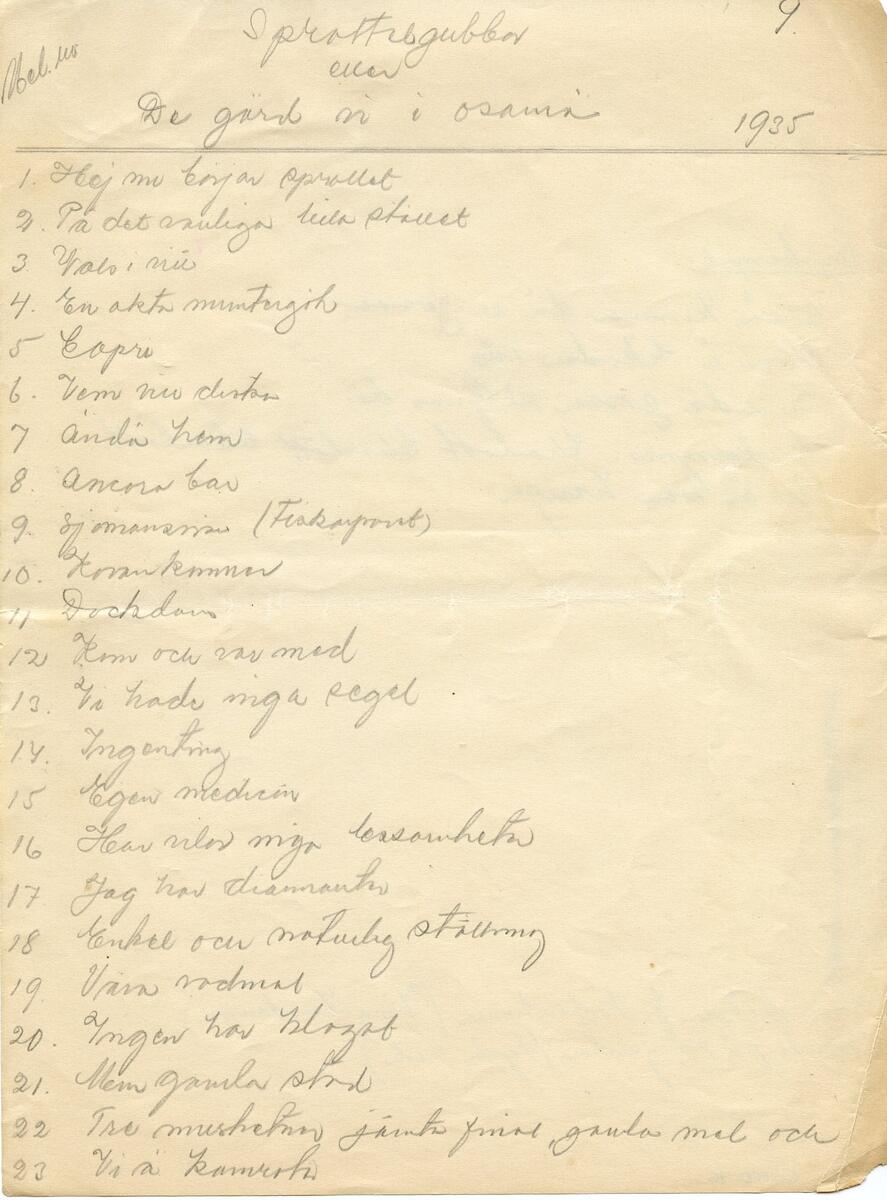 9.
Sprattelgubbar
Mel. no
eller
De gärd vi i osamja
1935
1. Hej nu börjar sprallet
2. På det vanliga lilla stället
3. Vals i
4. En äkta muntergök
5 Capri
6. Vem vill diska
7 Ända hem
8. Ancora bar
9. Sjömansvisa (Fiskarpont)
10. Kovan kommer
11 Dockdans
12 Kom och var med
13. Vi hade inga segel
14. Ingenting
15 Egen medicin
16 Har vilar inga ledsamheter
17. Jag har diamanter
18 Enkel och naturlig ställning
19 Våra vadmal
20. Ingen har klagat
21. Min gamla stad
22 Tre musketörer jämte final, gamla mel och
23 Vi ä kamrater